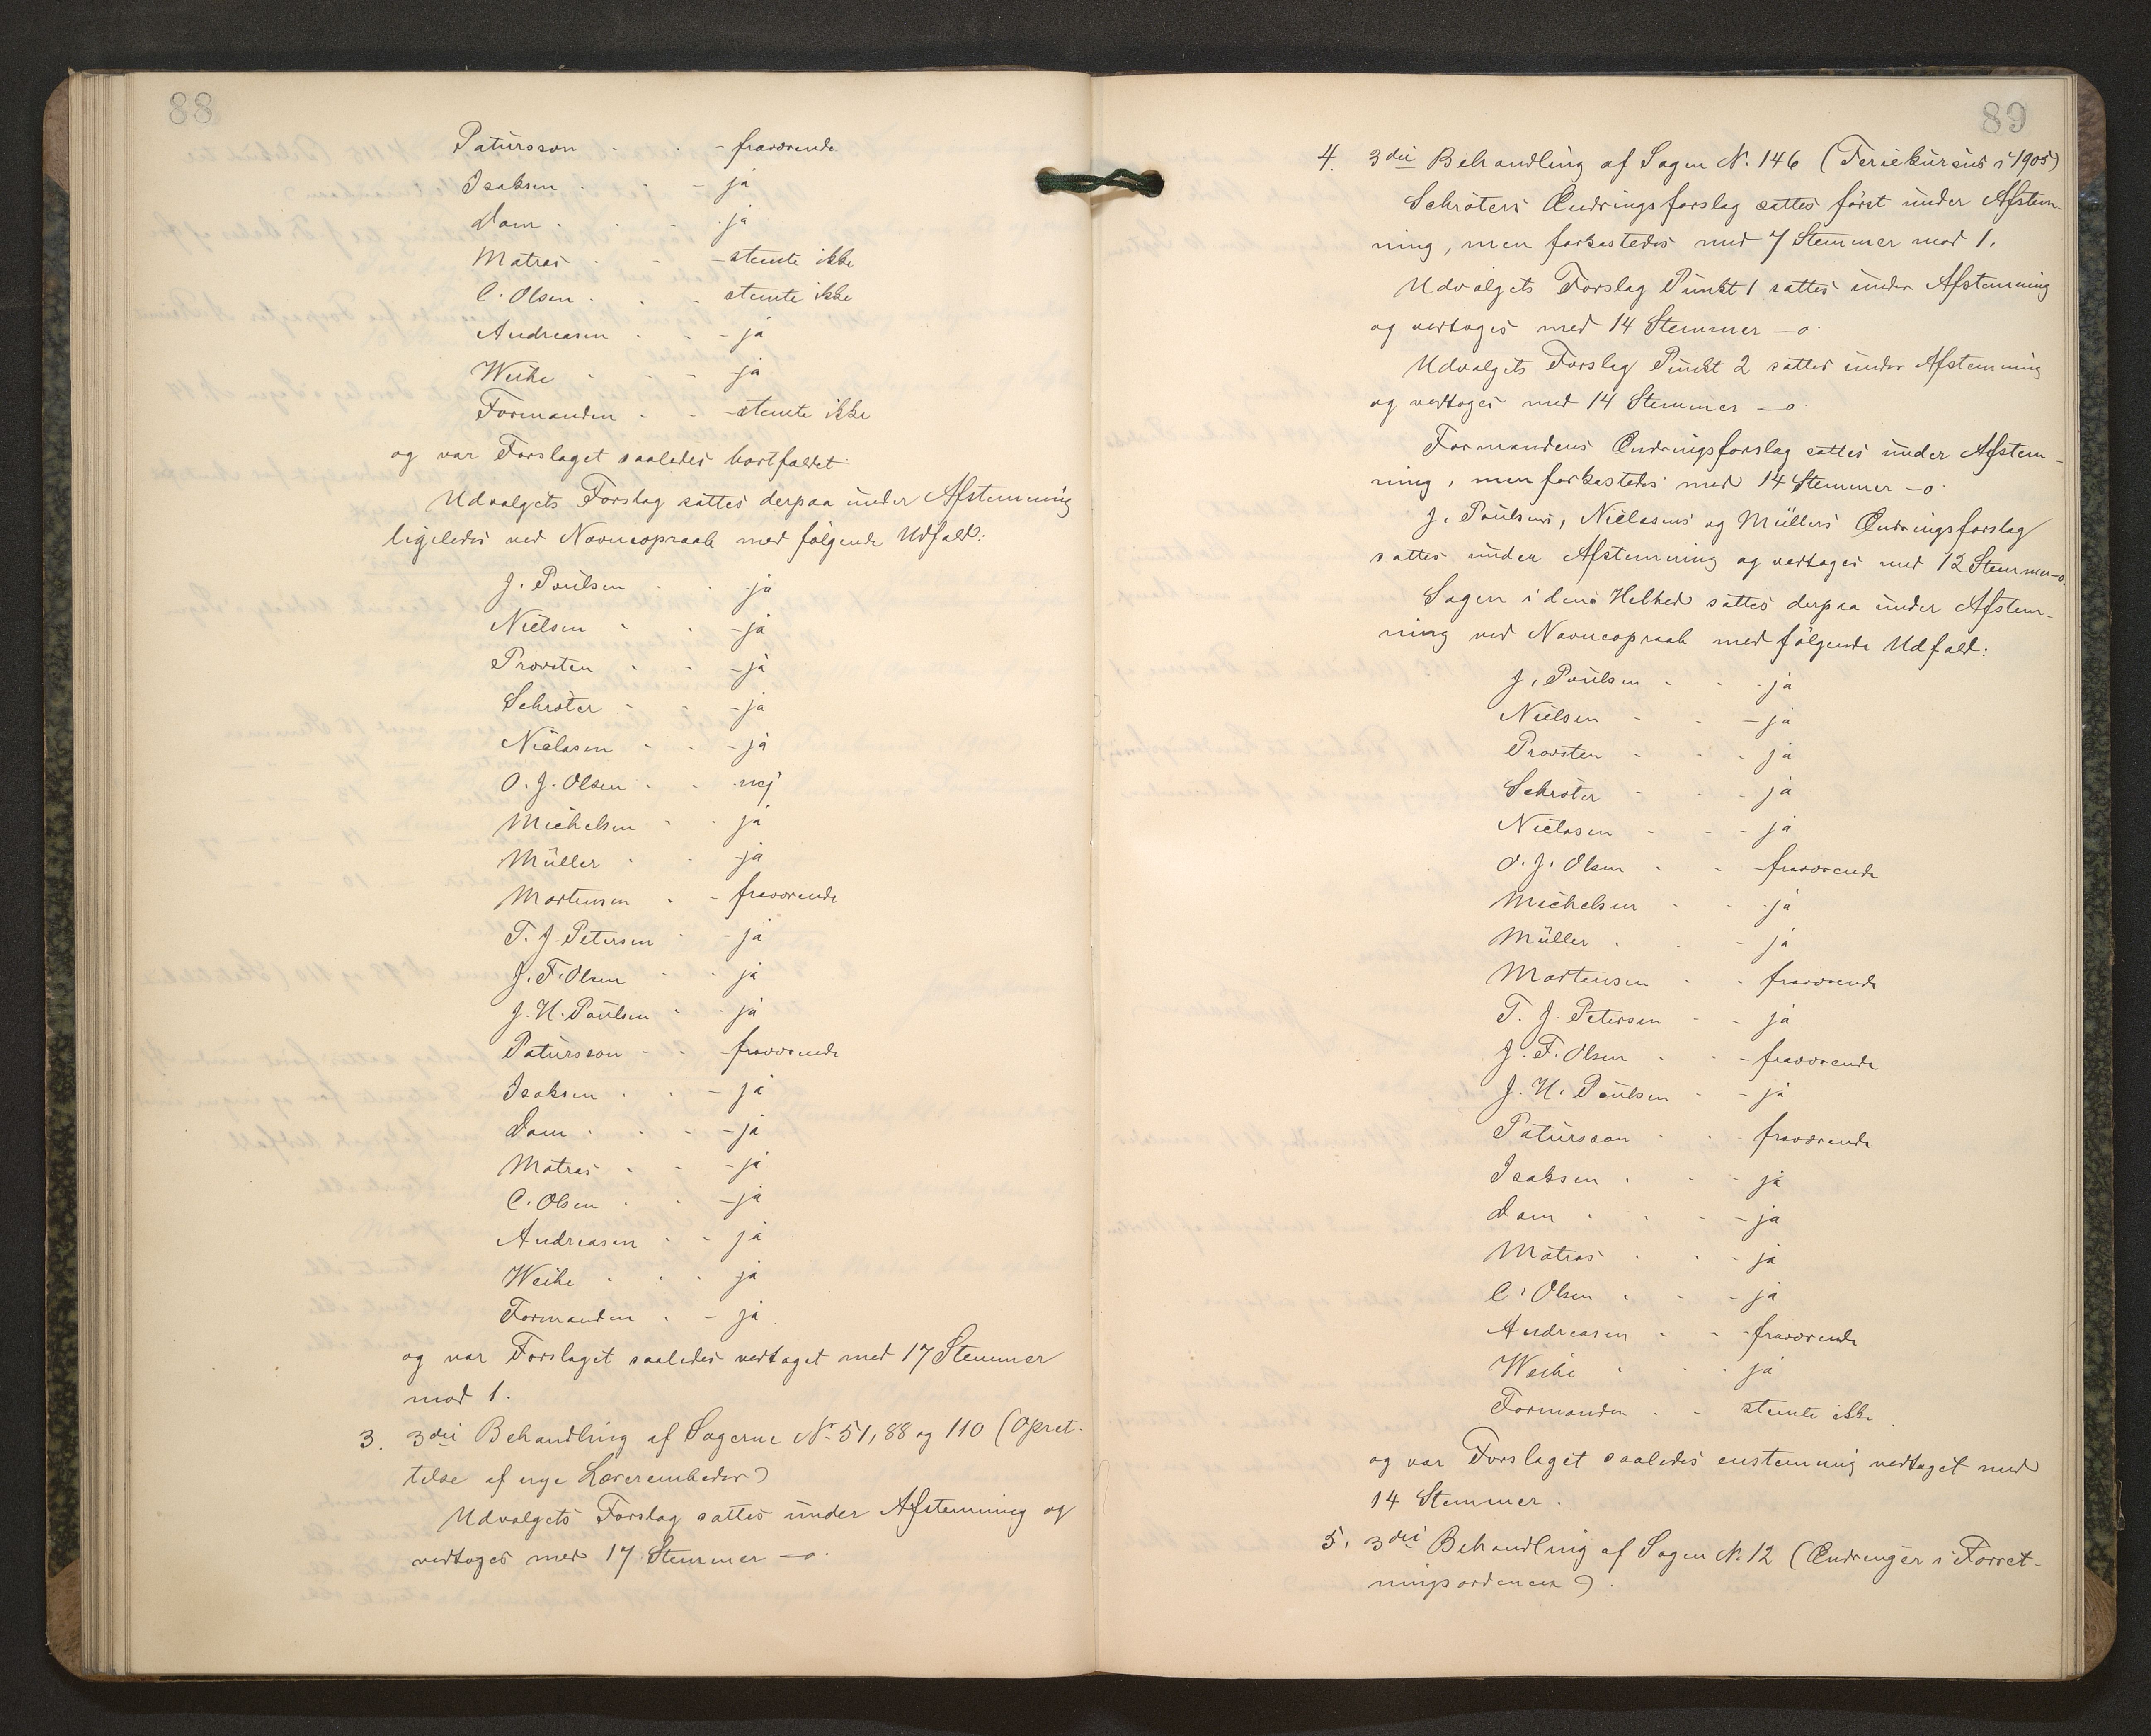 88
Patursson - - - fraværende
Isaksen - - - ja
Dam - - - ja
Matras - - - stemte ikke
C. Olsen - - - stemte ikke
Andreasen - - - ja
Weihe - - - ja
Formanden - - - stemte ikke
og var Forslaget saaledes bortfaldet.
Udvalgets Forslag sattes derpaa under Afstemning
ligeledes ved Navneopraab med følgende Udfald:
J. Poulsen - - ja
Nielsen - - - ja
Provsten - - - ja
Schrøter - - - ja
Niclasen - - - ja
O. J. Olsen - - nej
Michelsen - - ja
Müller - - - ja
Mortensen - - fraværende
T. J. Petersen - - ja
J. F. Olsen - - ja
J. H. Poulsen - - ja
Patursson - - - fraværende
Isaksen - - - ja
Dam - - - ja
Matras - - - ja
C. Olsen - - - ja
Andreasen - - ja
Weihe - - - ja
Formanden - - ja.
og var Forslaget saaledes vedtaget med 17 Stemmer
mod 1.
3. 3die Behandling af Sagerne Nr. 51, 88 og 110 (Opret-
telse af nye Lærerembeder)
Udvalgets Forslag sattes under Afstemning og
vedtoges med 17 Stemmer — o.
89
4. 3die Behandling af Sagen N. 146 (Feriekursus i 1905)
Schrøters Ændringsforslag sattes først under Afstem-
ning, men forkastedes med 7 Stemmer mod 1.
Udvalgets Forslag Punkt 1 sattes under Afstemning
og vedtoges med 14 Stemmer — o.
Udvalgets Forslag Punkt 2 sattes under Afstemning
og vedtoges med 14 Stemmer — o.
Formandens Ændringsforslag sattes under Afstem-
ning, men forkastedes med 14 Stemmer — o.
J. Poulsens, Niclasens og Müllers Ændringsforslag
sattes under Afstemning og vedtoges med 12 Stemmer — o.
Sagen i dens Helhed sattes derpaa under Afstem-
ning ved Navneopraab med følgende Udfald:
J. Poulsen - - - ja
Nielsen - - - ja
Provsten - - - ja
Schrøter - - - ja
Niclasen - - - ja
O. J. Olsen - - - fraværende
Michelsen - - - ja
Müller - - - ja
Mortensen - - fraværende
T. J. Petersen - - ja
J. F. Olsen - - - fraværende
J. H. Poulsen - - ja
Patursson - - - fraværende
Isaksen - - - ja
Dam - - - ja
Matras - - - ja
C. Olsen - - - ja
Andreasen - - - fraværende
Weihe - - - ja
Formanden - - stemte ikke.
og var Forslaget saaledes enstemmig vedtaget med
14 Stemmer.
5. 3die Behandling af Sagen N. 12 (Ændringer i Forret-
ningsordenen).